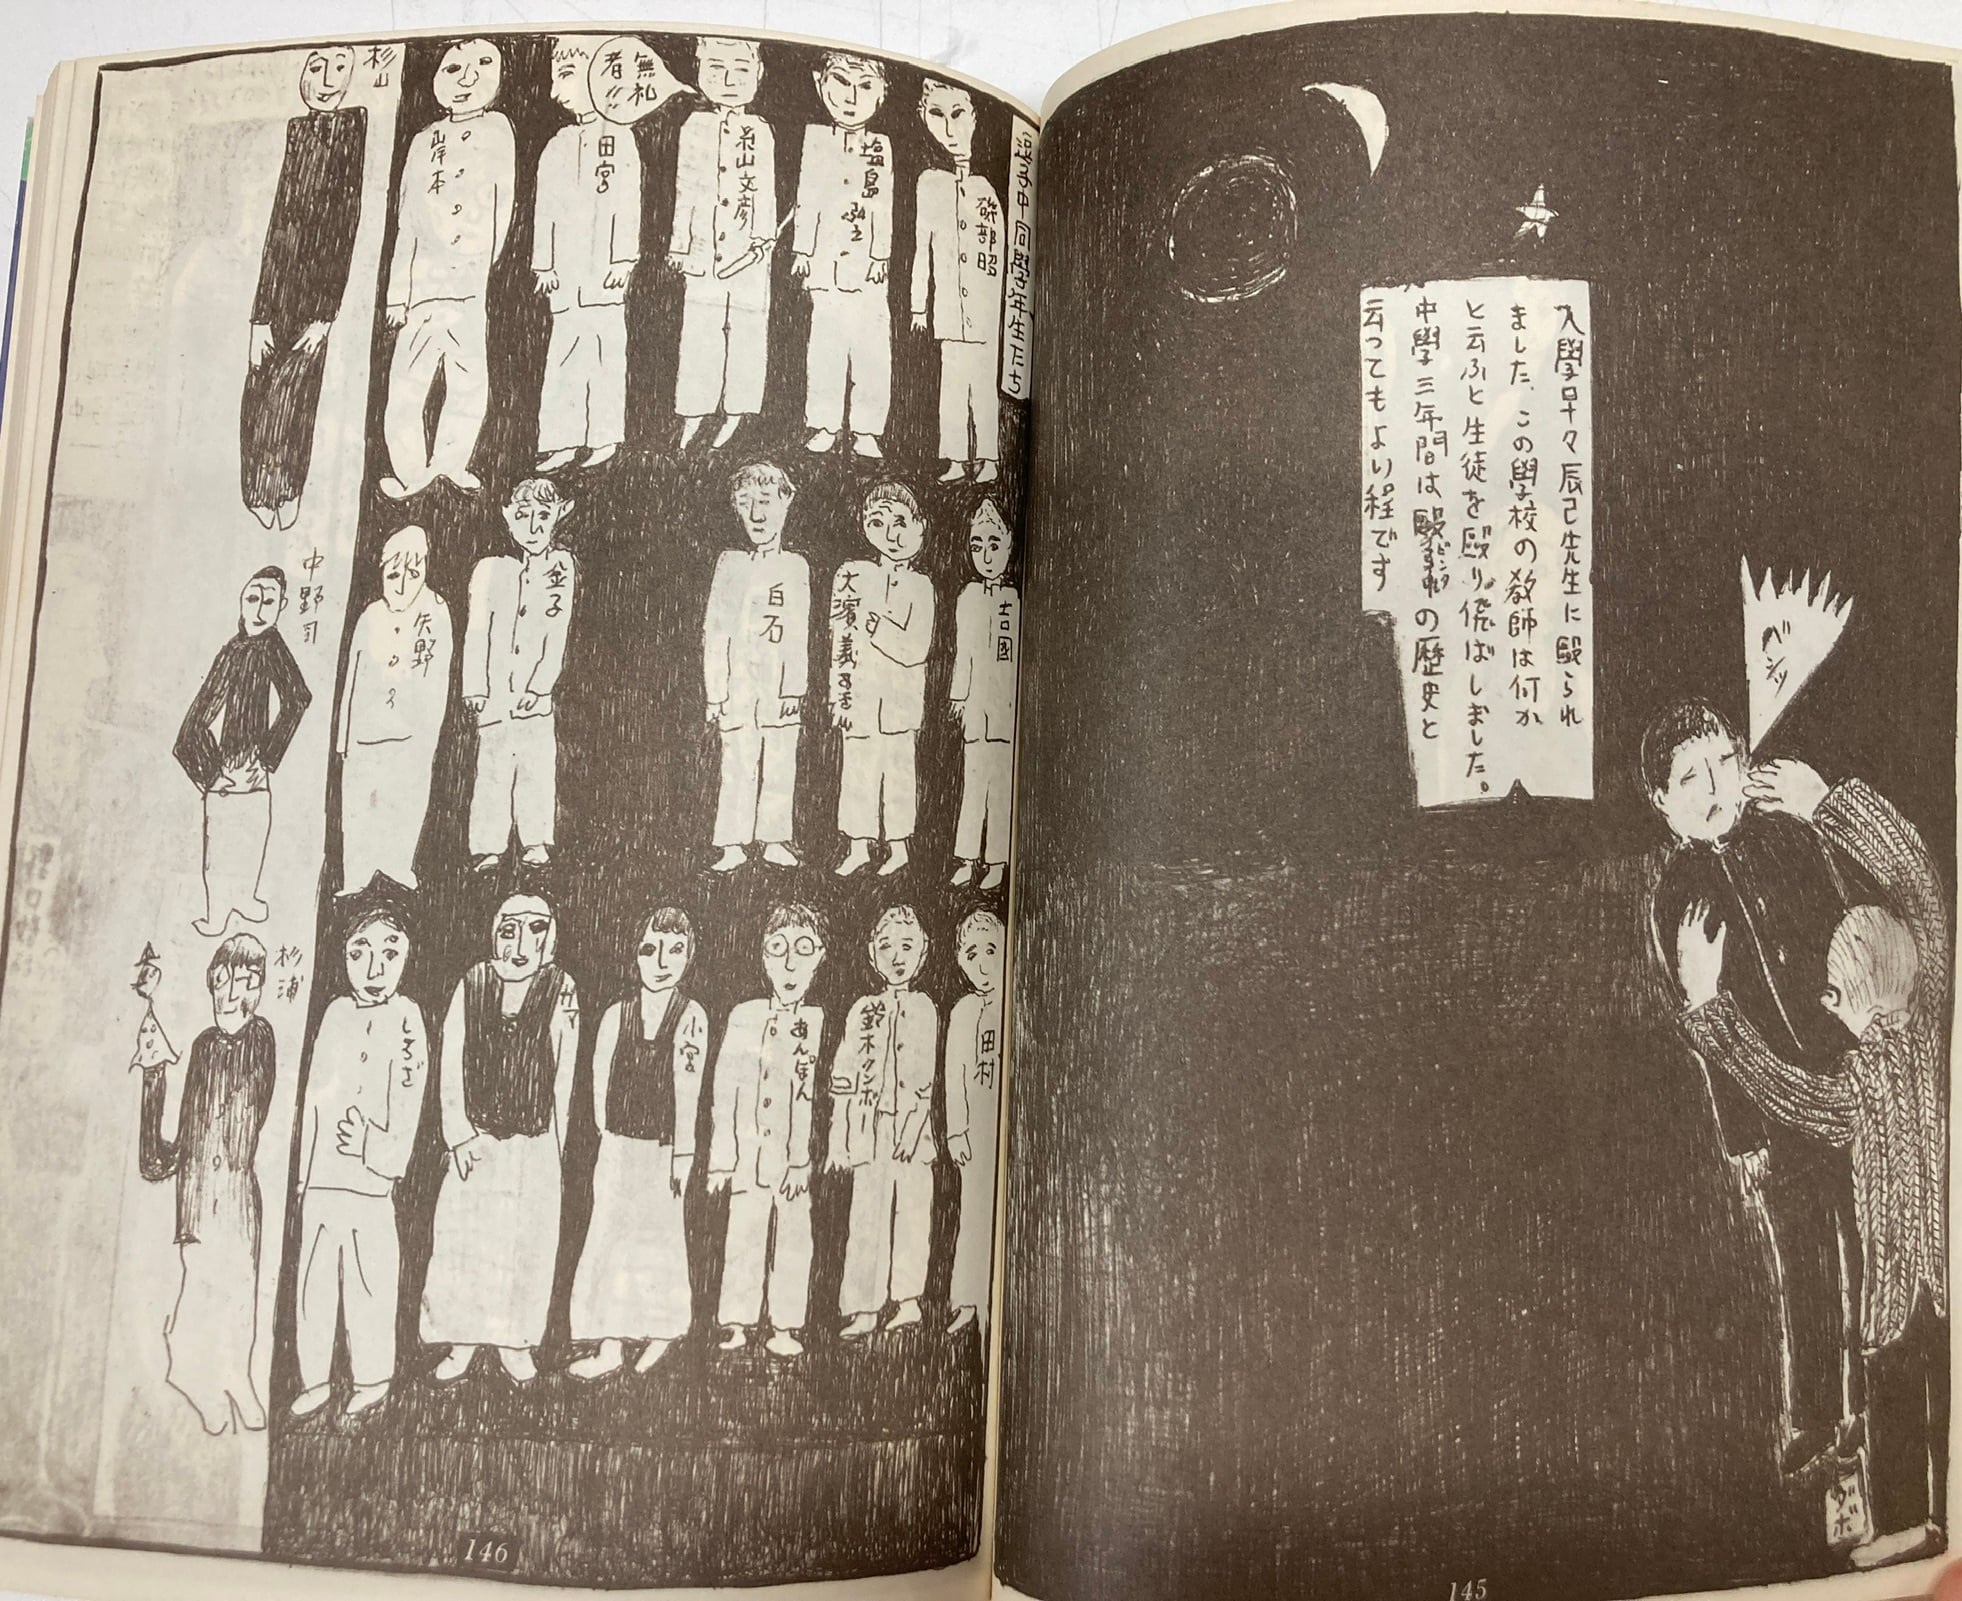 入學早々辰己先生に毆られ
ました、この學校の教師は何か
と云ふと生徒を毆り倒ばしました。
中學三年間は の歴史と
云ってもよい程です
ベシッ
ダボ
145
逗子中同學年生たち
磯部昭
塩島
糸山文彦
無礼
者!!
田宮
岸本
杉山
吉國
大濱義
白石
金子
矢野
中野司
田村
鈴木クンボ
あんぽん
小宮
しらざ
杉浦
146